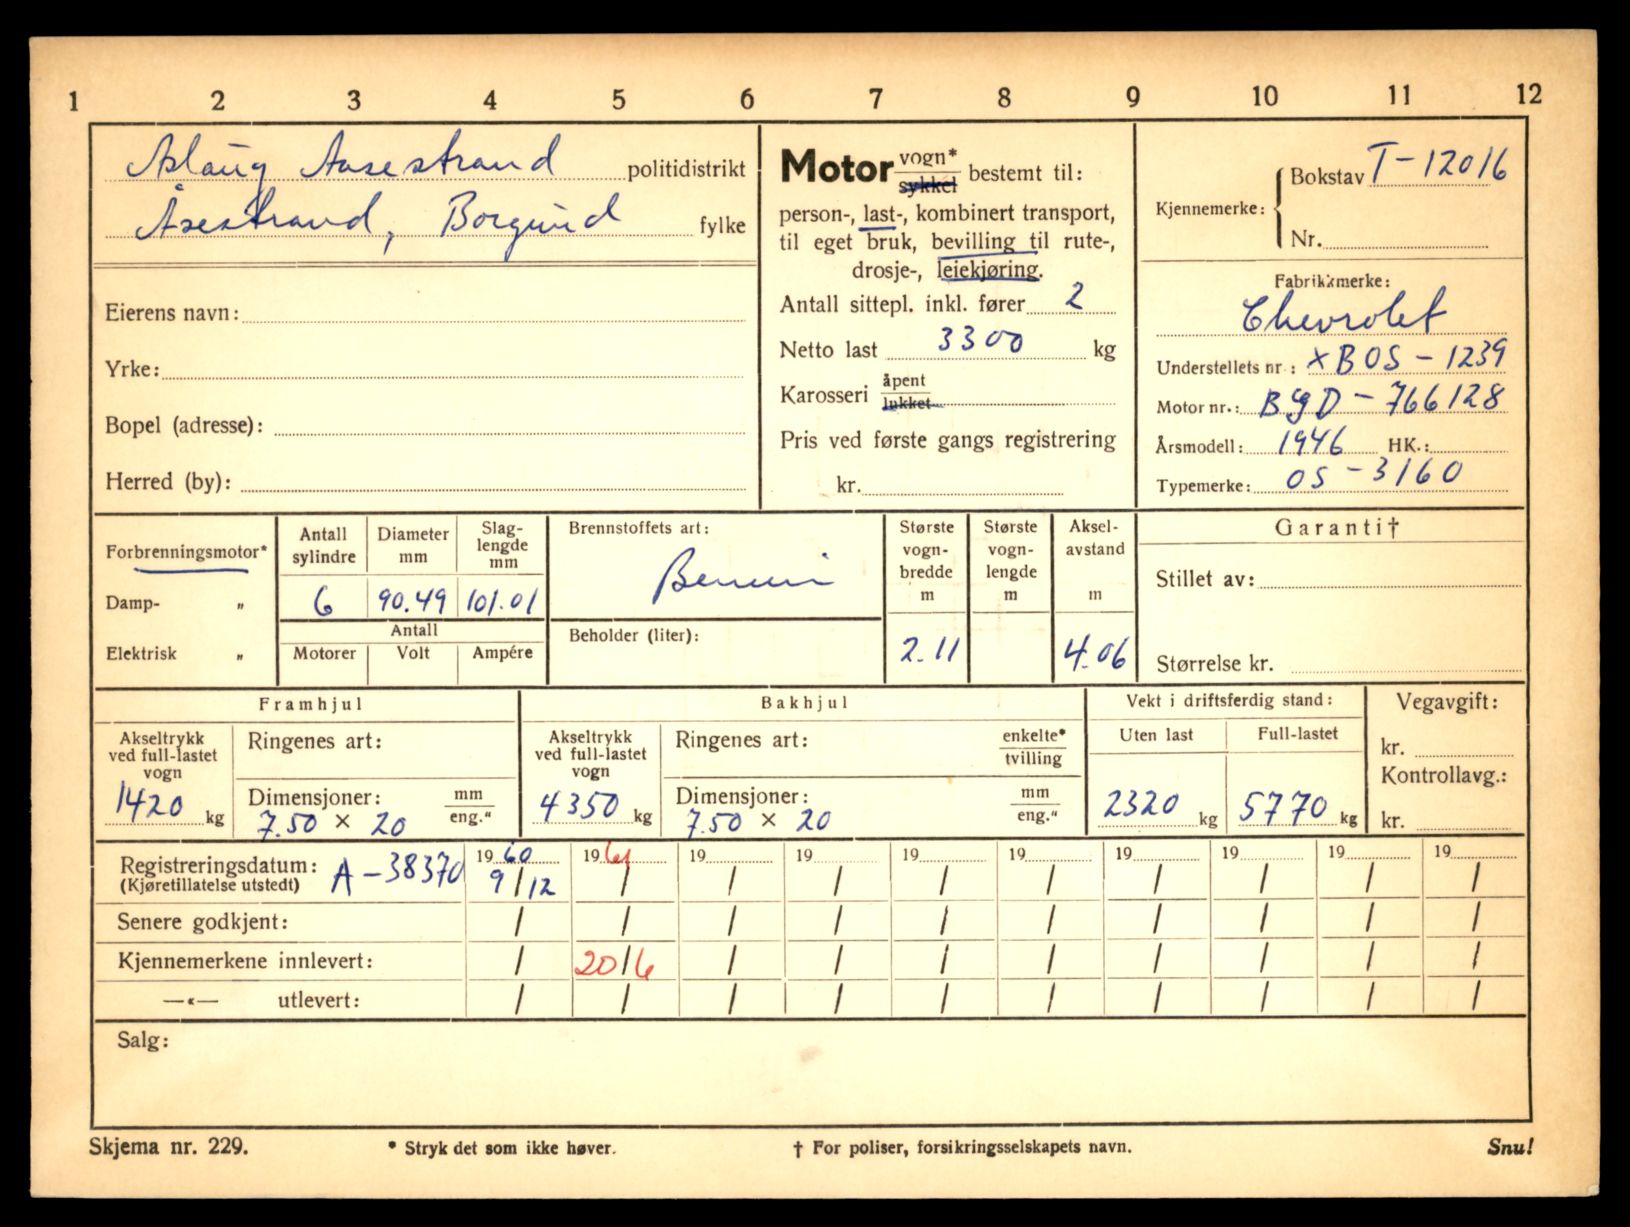 1 2 3 4 5 6 7 8 9 10 11 12
Aslaug Aasestrand politidistrikt
Åsestrand, Borgund fylke
Eierens navn:
Yrke:
Bopel (adresse):
Herred (by):
Motor vogn* sykkel bestemt til:
person-, last-, kombinert transport,
til eget bruk, bevilling til rute-,
drosje-, leiekjøring.
Antall sittepl. inkl. fører 2
Netto last 3300 kg
Karosseri åpent lukket
Pris ved første gangs registrering
kr.
Kjennemerke: Bokstav T-12016
Nr.
Fabrikkmerke:
Chevrolet
Understellets nr.: XBOS-1239
Motor nr.: BGD-766128
Årsmodell: 1946 HK.:
Typemerke: OS-3160
Forbrenningsmotor*
Damp- "
Elektrisk "
Antall sylindre Diameter mm Slag-lengde mm
6 90.49 101.01
Antall
Motorer Volt Ampére
Brennstoffets art:
Bensin
Beholder (liter):
Største vogn-bredde m Største vogn-lengde m Aksel-avstand m
2.11 4.06
Garanti†
Stillet av:
Størrelse kr.
Framhjul
Akseltrykk ved full-lastet vogn
1420 kg
Ringenes art:
Dimensjoner: mm eng."
7.50 × 20
Bakhjul
Akseltrykk ved full-lastet vogn
4350 kg
Ringenes art: enkelte* tvilling
Dimensjoner: mm eng."
7.50 × 20
Vekt i driftsferdig stand:
Uten last Full-lastet
2320 kg 5770 kg
Vegavgift:
kr.
Kontrollavg.:
kr.
Registreringsdatum: A-38370 1960 1961 19 19 19 19 19 19 19 19
(Kjøretillatelse utstedt) 9/12 / / / / / / / / /
Senere godkjent: / / / / / / / / / /
Kjennemerkene innlevert: / 20/6 / / / / / / / /
—«— utlevert: / / / / / / / / / /
Salg:
Skjema nr. 229. * Stryk det som ikke høver. † For poliser, forsikringsselskapets navn. Snu!